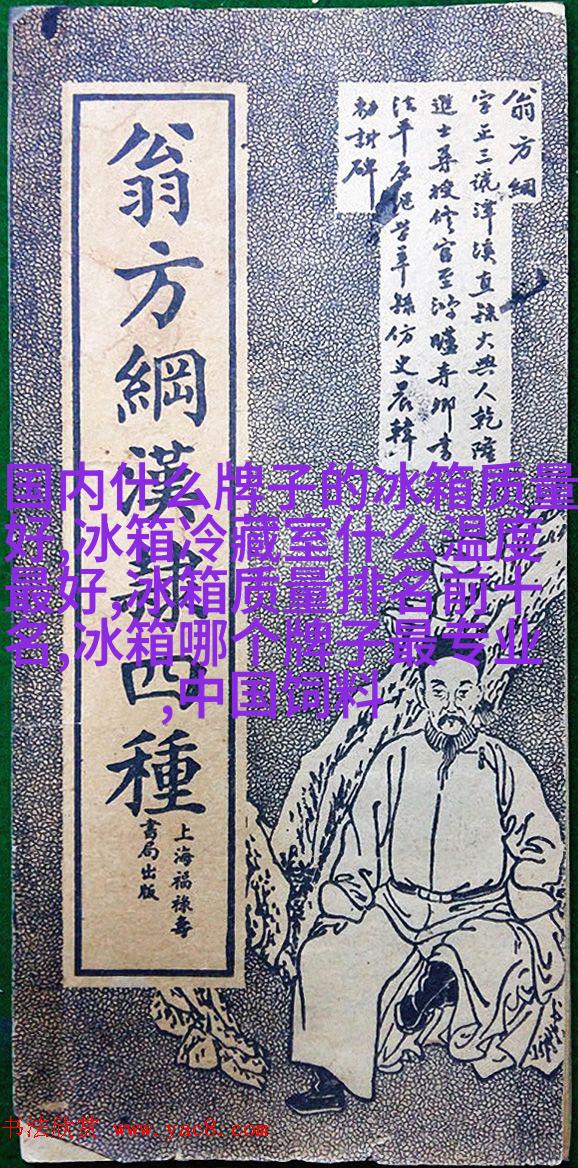 翁方綱
字正三號潭溪直隸大興人乾隆
進士尋授官至鴻臚寺卿書
法平原隸仿史晨韓
勅碑
翁方綱漢隸四種
上海福祿壽
書局出版
国内什么牌子的冰箱质量
好,冰箱冷藏室什么温度
最好,冰箱质量排名前十
名,冰箱哪个牌子最专业
,中国饲料
书法欣赏 www.yac8.com